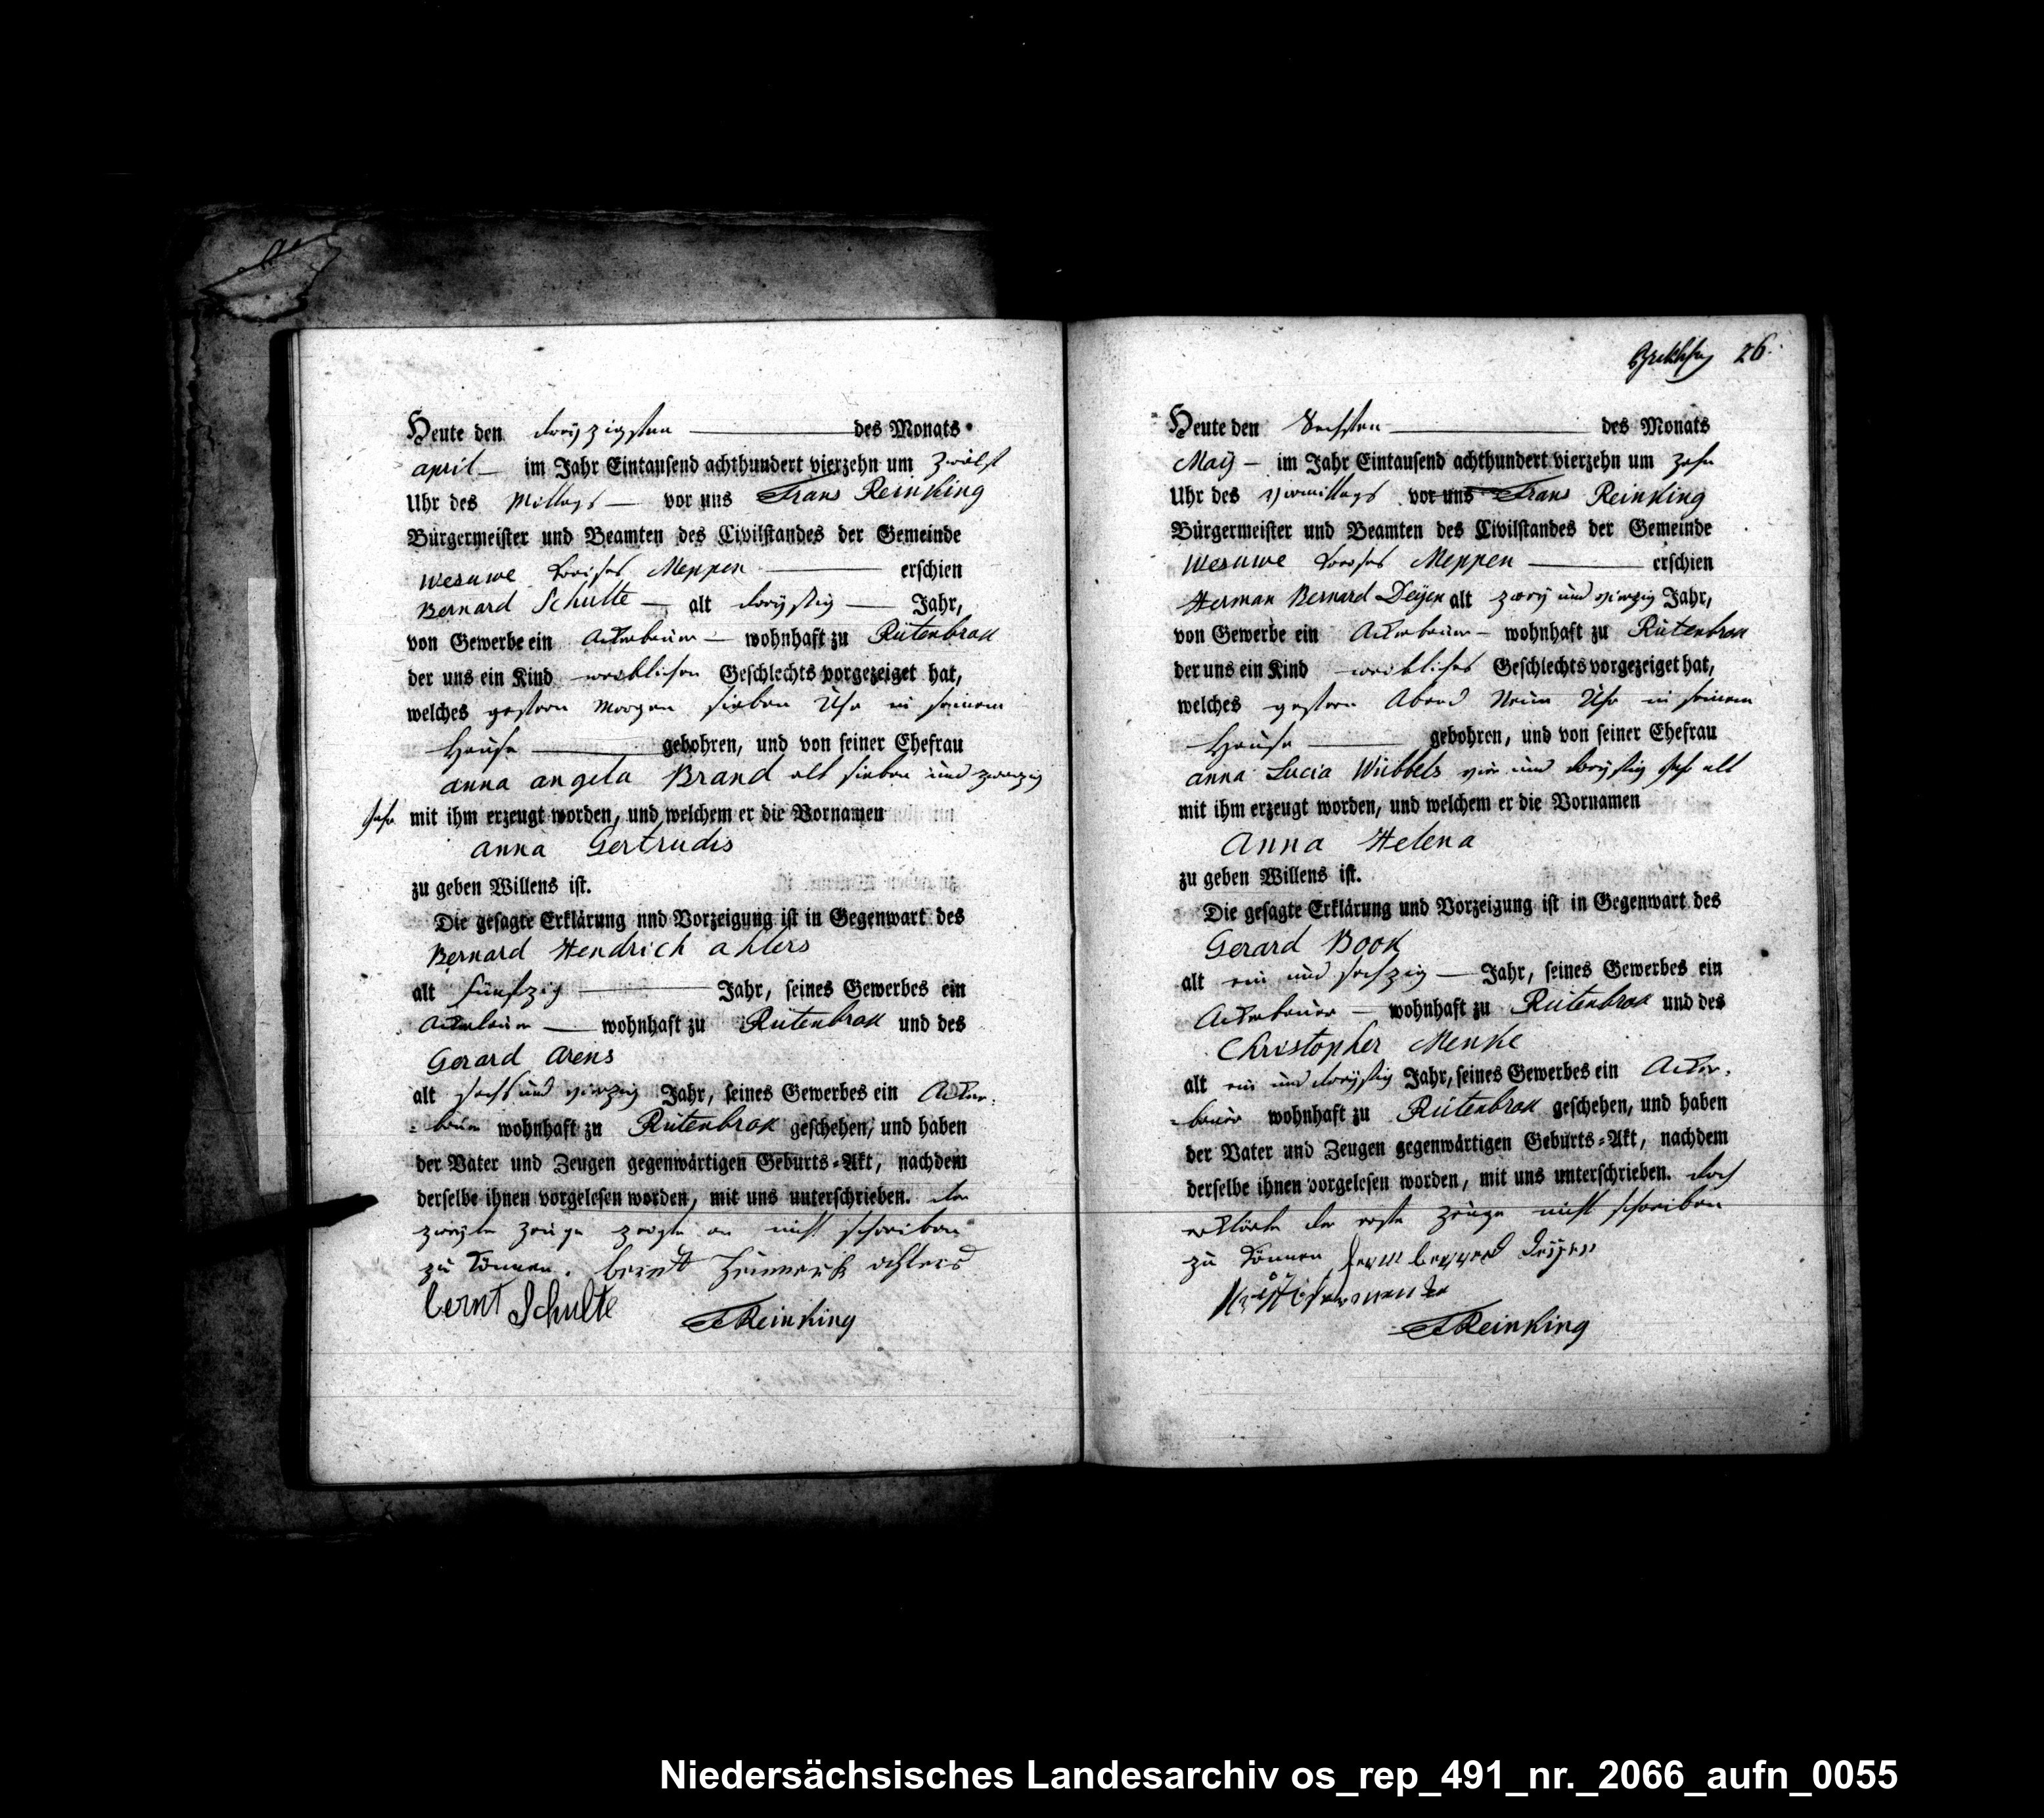 Heute den dreyzigsten des Monats
april im Jahr Eintausend achthundert vierzehn um zwölf
Uhr des Mittags vor uns Frans Reinking
Bürgermeister und Beamten des Civilstandes der Gemeinde
Wesuwe Kreises Meppen erschien
Bernard Schulte alt dreystig Jahr,
von Gewerbe ein Ackerbauer wohnhaft zu Rütenbrok
der uns ein Kind weiblichen Geschlechts vorgezeiget hat,
welches gestern Morgen sieben Uhr in seinem
Hause gebohren, und von seiner Ehefrau
anna angela Brand alt sieben und zwanzig
Jahr mit ihm erzeugt worden, und welchem er die Vornamen
anna Gertrudis
zu geben Willens ist.
Die gesagte Erklärung nnd Vorzeigung ist in Gegenwart des
Bernard Hendrich ahlers
alt fünfzig Jahr, seines Gewerbes ein
Ackerbauer wohnhaft zu Rütenbrok und des
Gerard Arens
alt sechs und vierzig Jahr, seines Gewerbes ein Acker-
-bauer wohnhaft zu Rütenbrok geschehen, und haben
der Vater und Zeugen gegenwärtigen Geburts-Akt, nachdem
derselbe ihnen vorgelesen worden, mit uns unterschrieben. der
zweyte Zeuge zeigte an nicht schreiben
zu können. bernt Hinnerik ahlers
bernt Schulte FReinking
26.
Heute den Sechsten des Monats
Maÿ im Jahr Eintausend achthundert vierzehn um zehn
Uhr des Vormittags vor uns Frans Reinking
Bürgermeister und Beamten des Civilstandes der Gemeinde
Wesuwe Kreises Meppen erschien
Herman Bernard Deÿen alt zwey und vierzig Jahr,
von Gewerbe ein Ackerbauer wohnhaft zu Rütenbrok
der uns ein Kind weibliches Geschlechts vorgezeiget hat,
welches gestern Abend Neun Uhr in seinem
Hause gebohren, und von seiner Ehefrau
anna Lucia Wübbels vier und dreystig Jahr alt
mit ihm erzeugt worden, und welchem er die Vornamen
Anna Helena
zu geben Willens ist.
Die gesagte Erklärung und Vorzeigung ist in Gegenwart des
Gerard Book
alt ein und sechzig Jahr, seines Gewerbes ein
Ackerbauer wohnhaft zu Rütenbrok und des
Christopher Menke
alt ein und dreystig Jahr, seines Gewerbes ein Acker-
-bauer wohnhaft zu Rütenbrok geschehen, und haben
der Vater und Zeugen gegenwärtigen Geburts-Akt, nachdem
derselbe ihnen vorgelesen worden, mit uns unterschrieben. doch
erklärte der erste Zeuge nicht schreiben
zu können Herm bernard Deijen
FReinking
Niedersächsisches Landesarchiv os_rep_491_nr._2066_aufn_0055